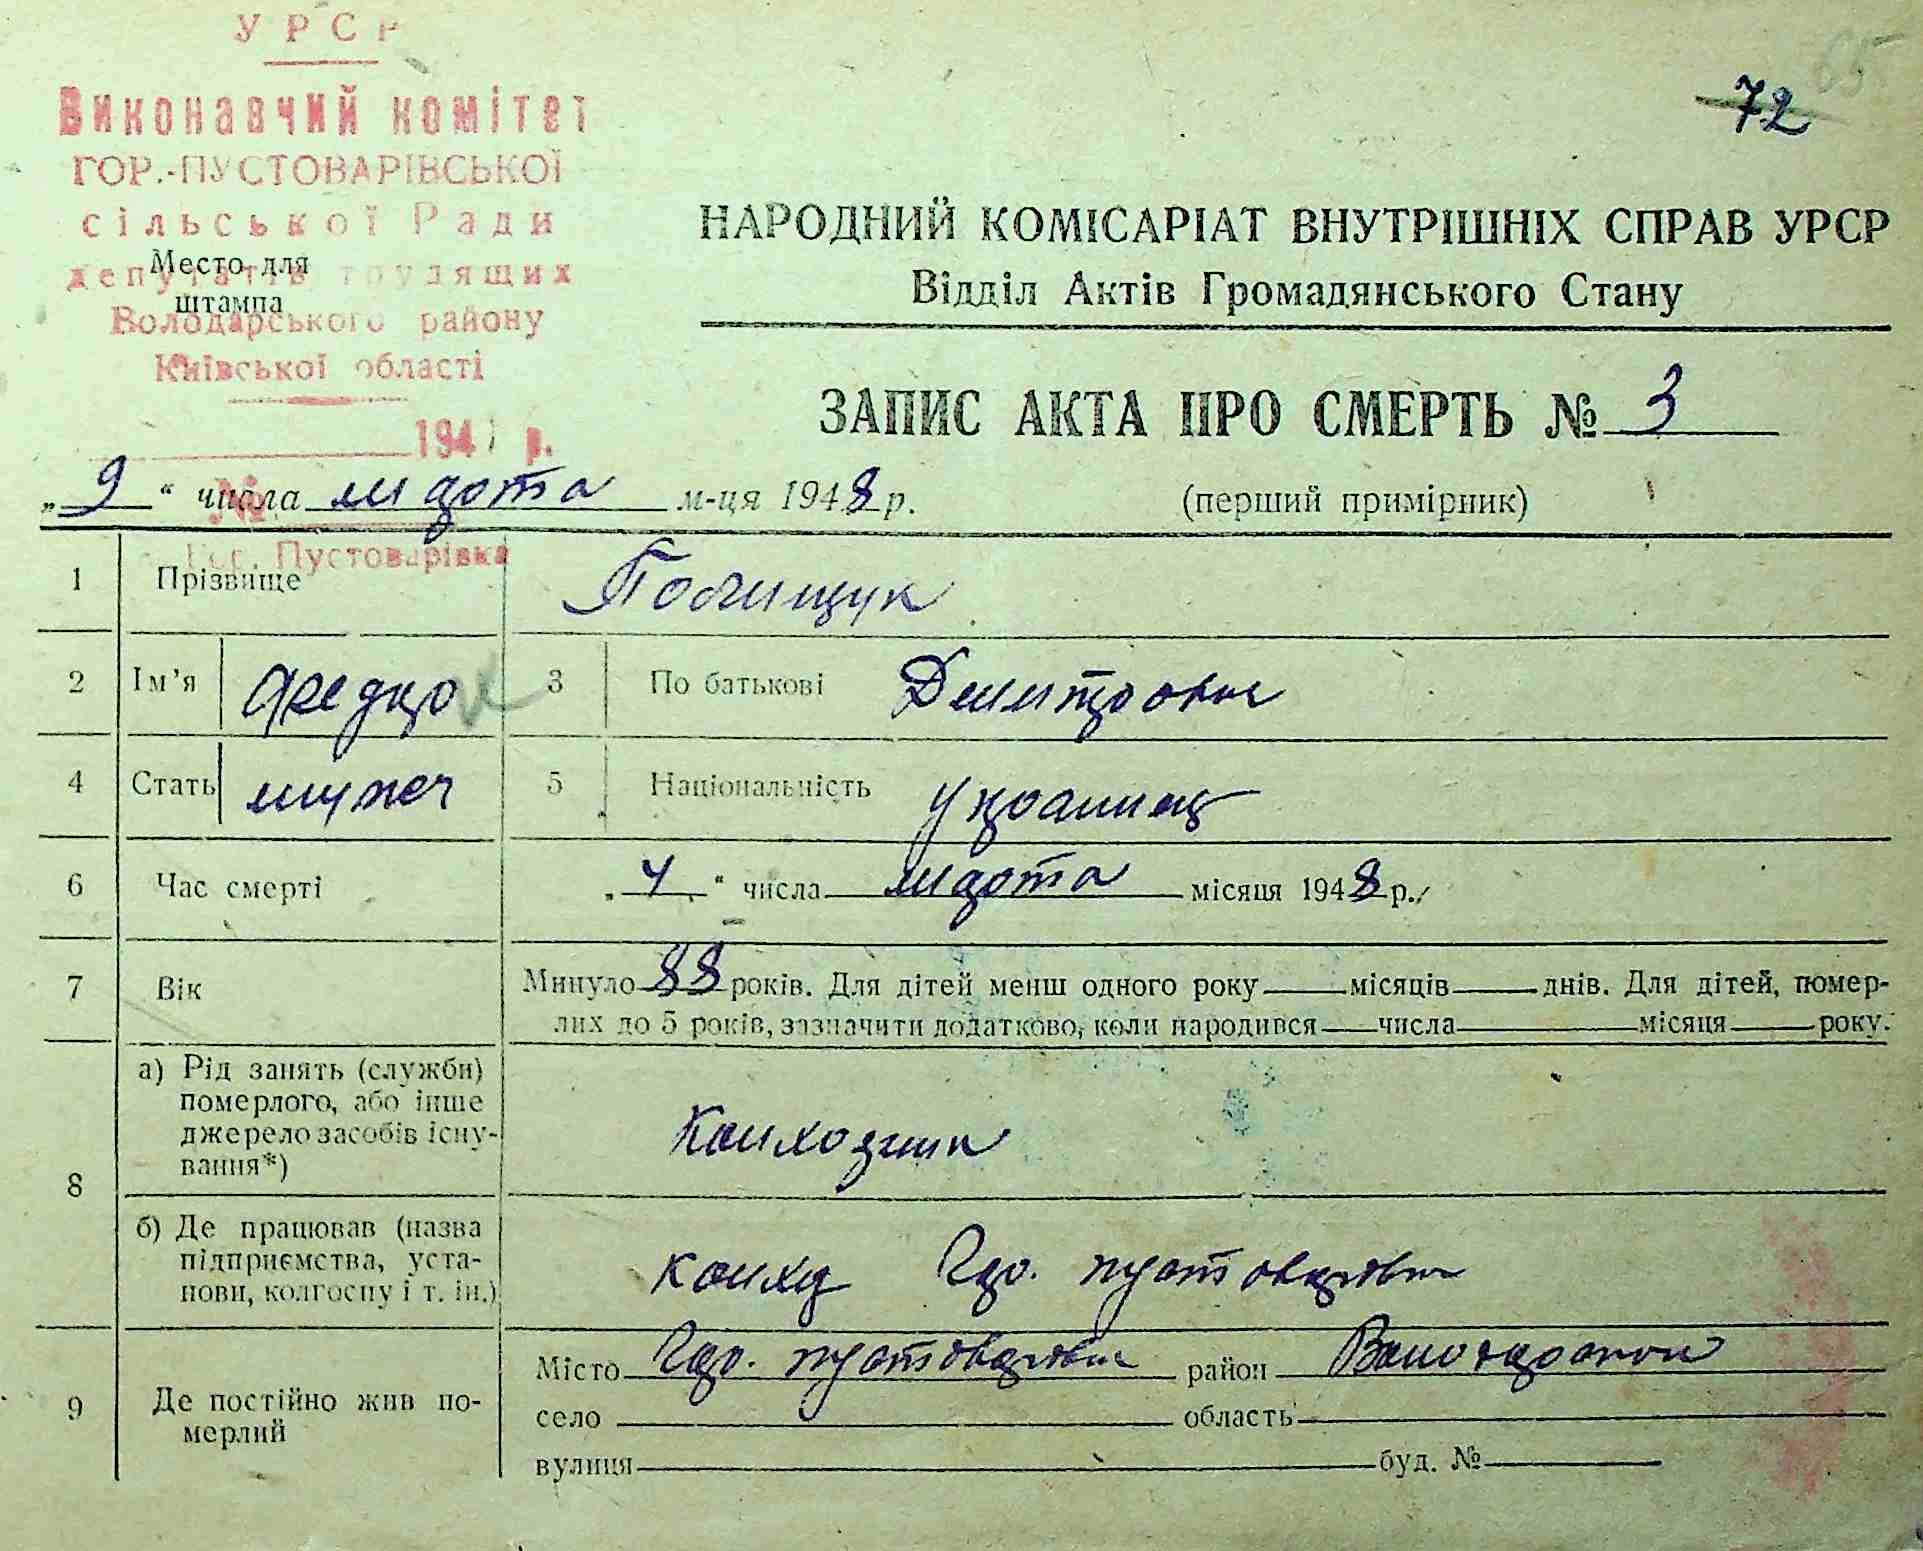 УРСР
Виконавчий комітет
ГОР.-ПУСТОВАРІВСЬКОЇ
сільської Ради
депутатів трудящих
Володарського району
Київської області
194 р.
№
Гор. Пустоварівка
Место для
штампа
65
72
НАРОДНИЙ КОМІСАРІАТ ВНУТРІШНІХ СПРАВ УРСР
Відділ Актів Громадянського Стану
ЗАПИС АКТА ПРО СМЕРТЬ № 3
„9“ числа марта м-ця 1948 р. (перший примірник)
1 Прізвище Полищук
2 Ім'я Федор 3 По батькові Дмитрович
4 Стать мужч 5 Національність украинец
6 Час смерті „4“ числа марта місяця 1948 р.
7 Вік Минуло 88 років. Для дітей менш одного року місяців днів. Для дітей, помер-
лих до 5 років, зазначити додатково, коли народився числа місяця року.
8 а) Рід занять (служби)
померлого, або інше
джерело засобів існу-
вання*) Колхозник
б) Де працював (назва
підприємства, уста-
нови, колгоспу і т. ін.) колхоз Гор. пустоваровка
9 Де постійно жив по-
мерлий
Місто Гор. пустоваровка район Володарский
село область
вулиця буд. №